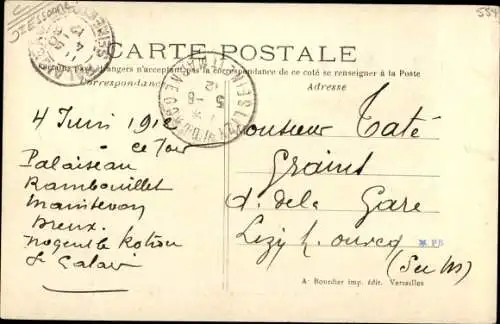 Seine Essonne
554
CARTE POSTALE
pays étrangers n'acceptant pas la correspondance de ce coté se renseigner à la Poste
Correspondance
Adresse
4 Juin 1912
ce jour
Palaiseau
Rambouillet
Maintenon
Dreux.
Nogent le Rotrou
St Calais
Monsieur Taté
Grains
r. de la Gare
Lizy s. ourcq
(S et M)
A. Bourdier imp. édit. Versailles